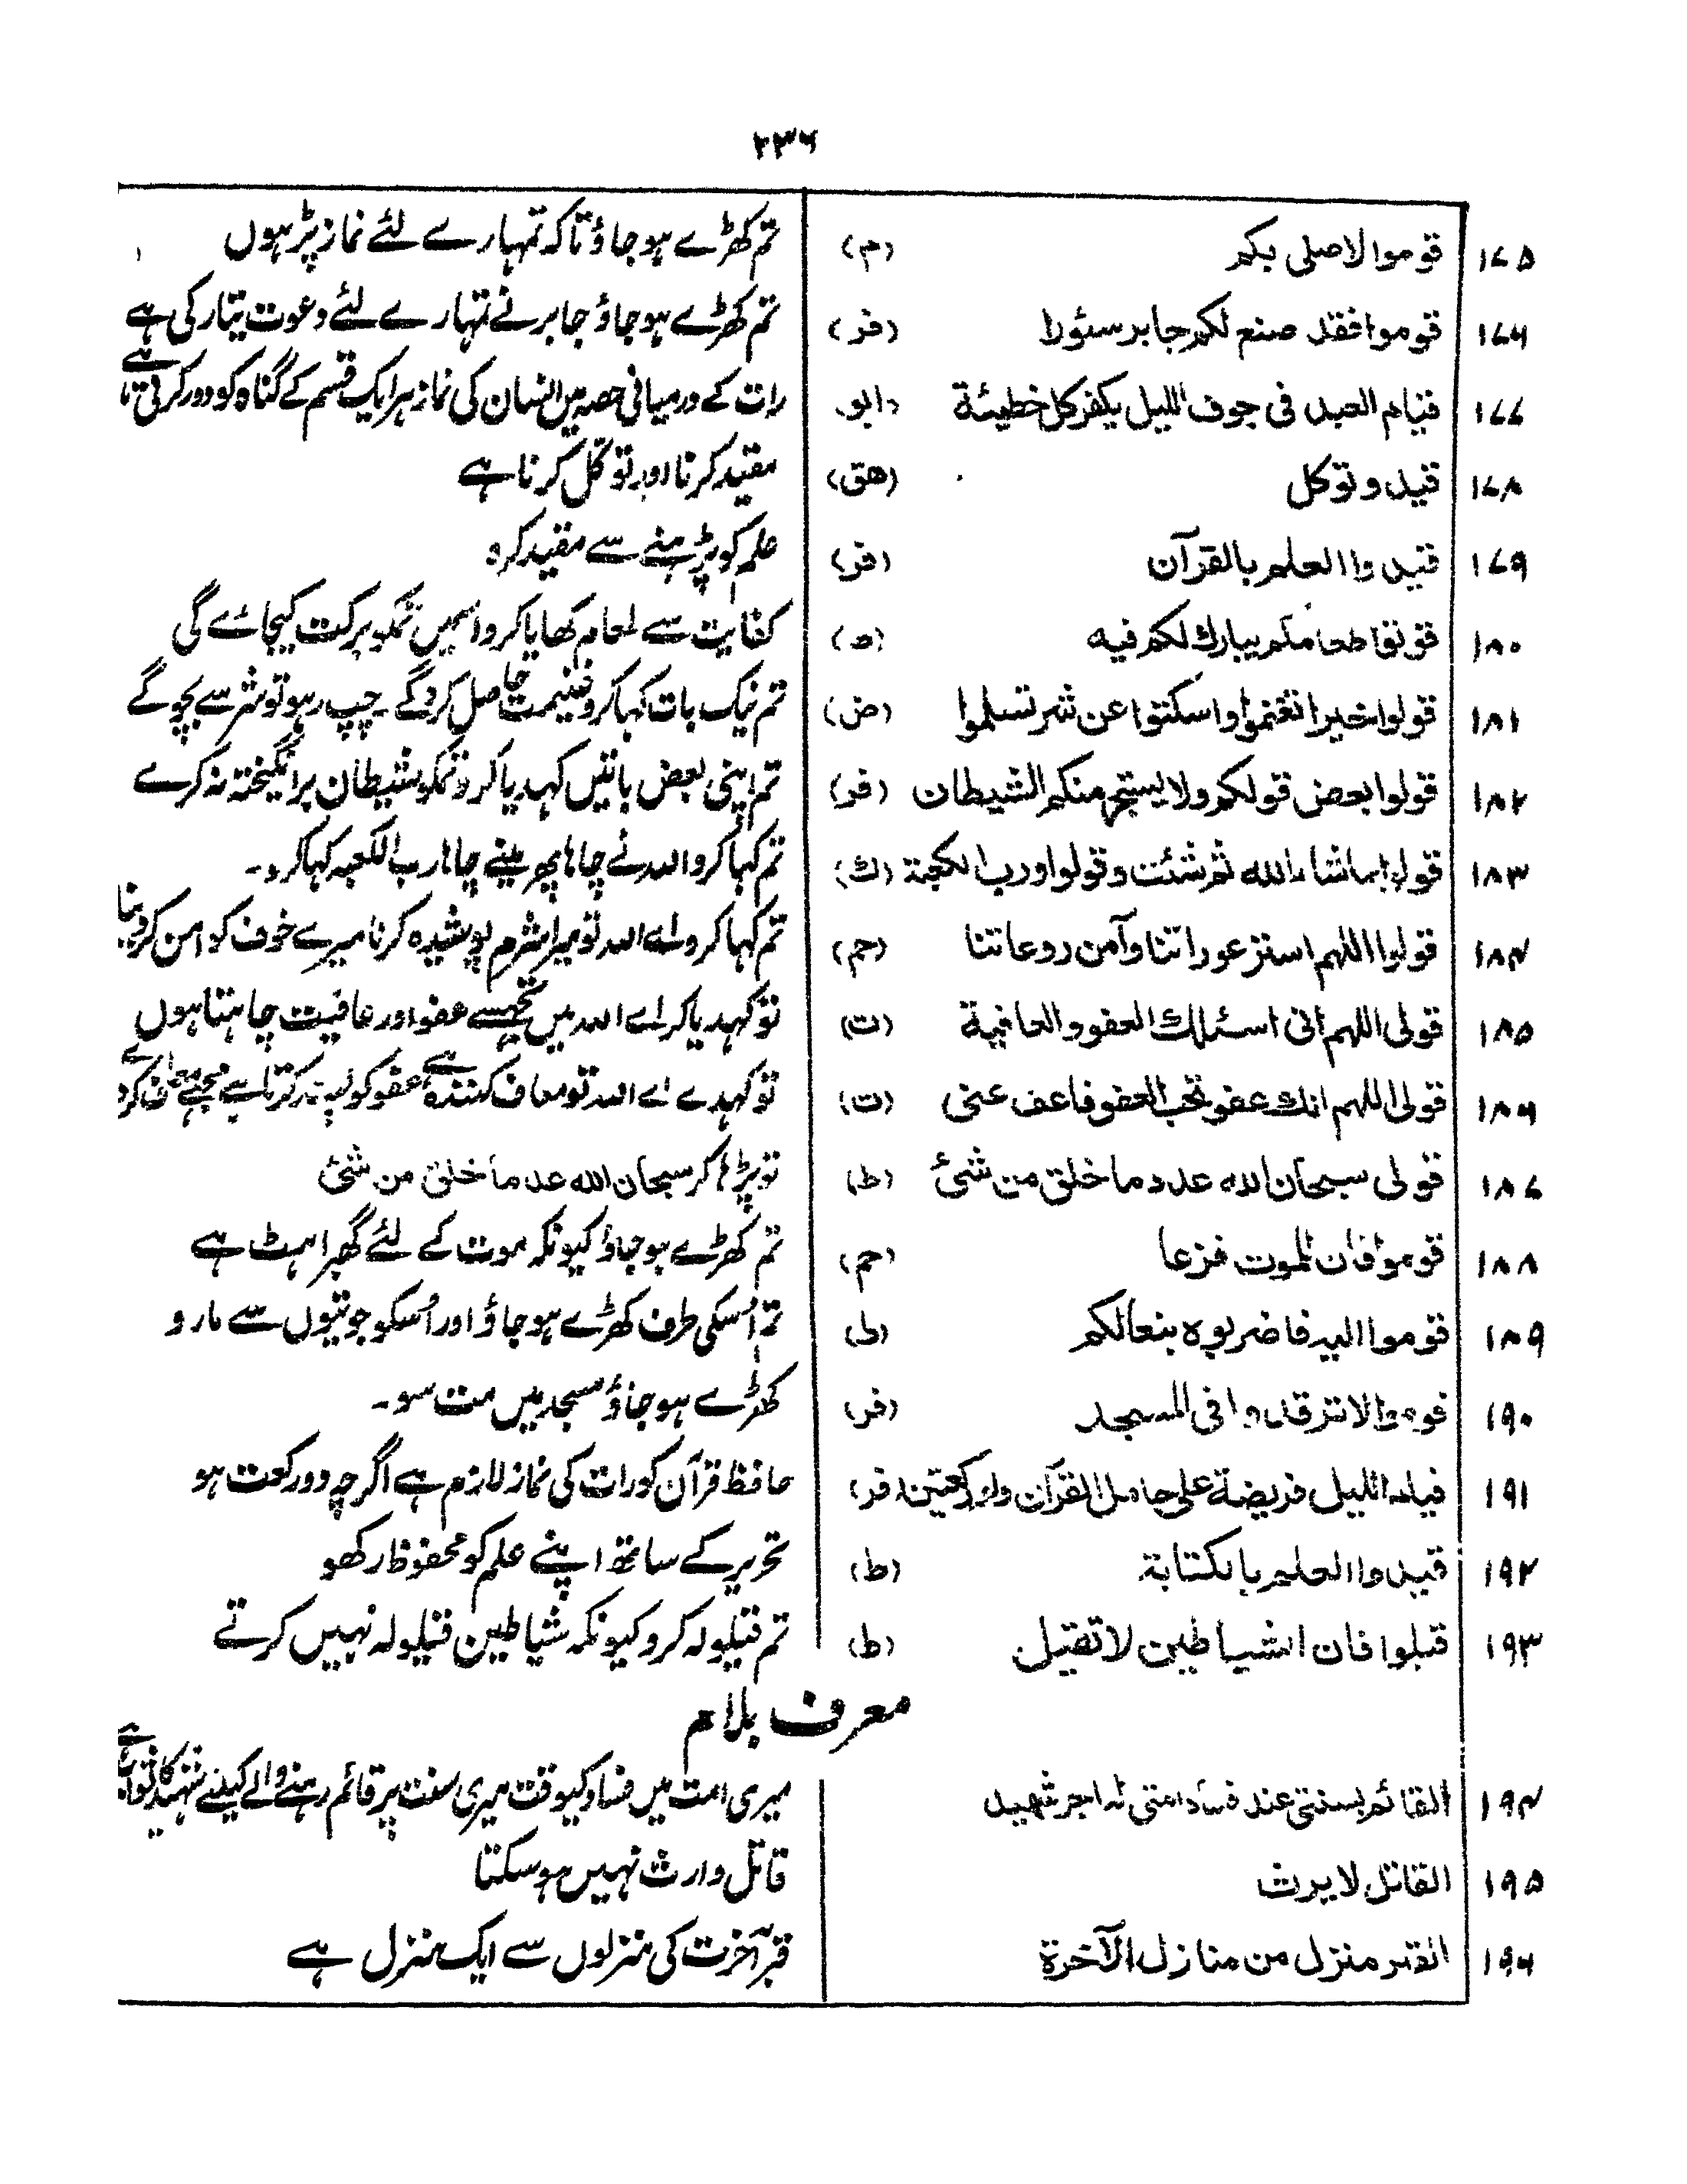 ۲۳۶
۱۷۵ قوموا لاصلی بکم (م) تم کھڑے ہو جاؤ تاکہ تمہارے لئے نماز پڑہوں
۱۷۶ قوموا فقد صنع لکم جابر سئورا (فر) تم کھڑے ہو جاؤ جابر نے تمہارے لئے دعوت تیار کی ہے
۱۷۷ قیام العبد فی جوف اللیل یکفر کل خطیئة (ابو) رات کے درمیانی حصہ میں انسان کی نماز ہر ایک قسم کے گناہ کو دور کرتی ہے
۱۷۸ قید و توکل (هق) مقید کرنا اور توکل کرنا ہے
۱۷۹ قیدوا العلم بالقرآن (فر) علم کو پڑہنے سے مقید کرو
۱۸۰ قوتوا طعامکم یبارك لکم فیه (ه) کفایت سے طعام کھایا کرو اسمیں تمکو برکت کیجائے گی
۱۸۱ قولوا خیرا تغنموا واسکتوا عن شر تسلموا (ض) تم نیک بات کہا کرو غنیمت حاصل کروگے ۔ چپ رہو تو شر سے بچو گے
۱۸۲ قولوا بعض قولکم ولا یستجر منکم الشیطان (فر) تم اپنی بعض باتیں کہدیا کرو تمکو شیطان برانگیختہ نہ کرے
۱۸۳ قولوا ماشاء الله ثم شئت وقولوا ورب الکعبة (ك) تم کہا کرو اللہ نے چاہا پھر مینے چاہا رب الکعبہ کہا کرو۔
۱۸۴ قولوا اللهم استر عوراتنا وآمن روعاتنا (حم) تم کہا کرو اے اللہ تو میرا شرم پوشیدہ کرنا میرے خوف کو امن کر دینا
۱۸۵ قولی اللهم انی اسئلك العفو والعافیة (ت) تو کہدیا کر اے اللہ میں تجھسے عفو اور عافیت چاہتا ہوں
۱۸۶ قولی اللهم انك عفو تحب العفو فاعف عنی (ت) تو کہدے اے اللہ تو معاف کنندہ ہے عفو کو پسند کرتا ہے مجھے معاف کر دے
۱۸۷ قولی سبحان الله عدد ما خلق من شئ (ط) تو پڑہا کر سبحان الله عدد ما خلق من شئ
۱۸۸ قوموا فان للموت فزعا (حم) تم کھڑے ہو جاؤ کیونکہ موت کے لئے گھبراہٹ ہے
۱۸۹ قوموا الیه فاضربوه بنعالکم (ط) تم اُسکی طرف کھڑے ہو جاؤ اور اُسکو جوتیوں سے مارو
۱۹۰ قوموا لا ترقدوا فی المسجد (فر) کھڑے ہو جاؤ مسجد میں مت سو۔
۱۹۱ قیام اللیل فریضة علی حامل القرآن ولو رکعتین (فر) حافظ قرآن کو رات کی نماز لازم ہے اگرچہ دو رکعت ہو
۱۹۲ قیدوا العلم بالکتابة (ط) تحریر کے ساتھ اپنے علم کو محفوظ رکھو
۱۹۳ قیلوا فان الشیاطین لا تقیل (ط) تم قیلولہ کرو کیونکہ شیاطین قیلولہ نہیں کرتے
معرف بلام
۱۹۴ القائم بسنتی عند فساد امتی له اجر شهید میری امت میں فساد کیوقت میری سنت پر قائم رہنے والے کیلئے شہید کا ثواب ہے
۱۹۵ القاتل لا یرث قاتل وارث نہیں ہو سکتا
۱۹۶ القبر منزل من منازل الآخرة قبر آخرت کی منزلوں سے ایک منزل ہے